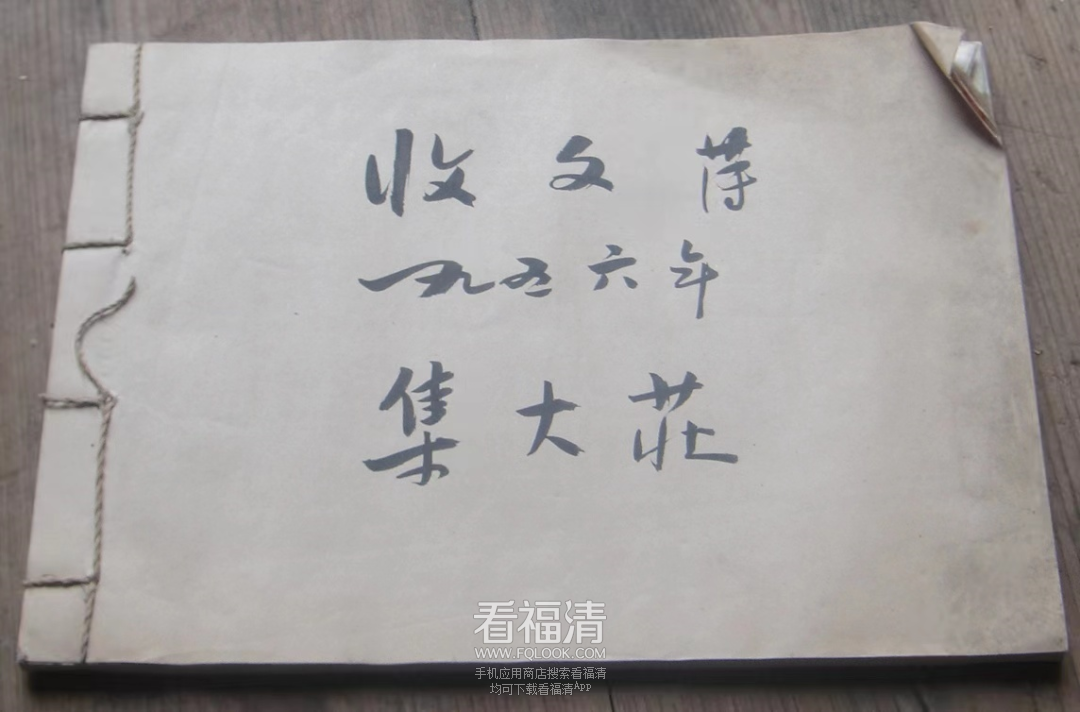 收文簿
一九五六年
集大莊
看福清
WWW.FQLOOK.COM
手机应用商店搜索看福清
均可下载看福清App